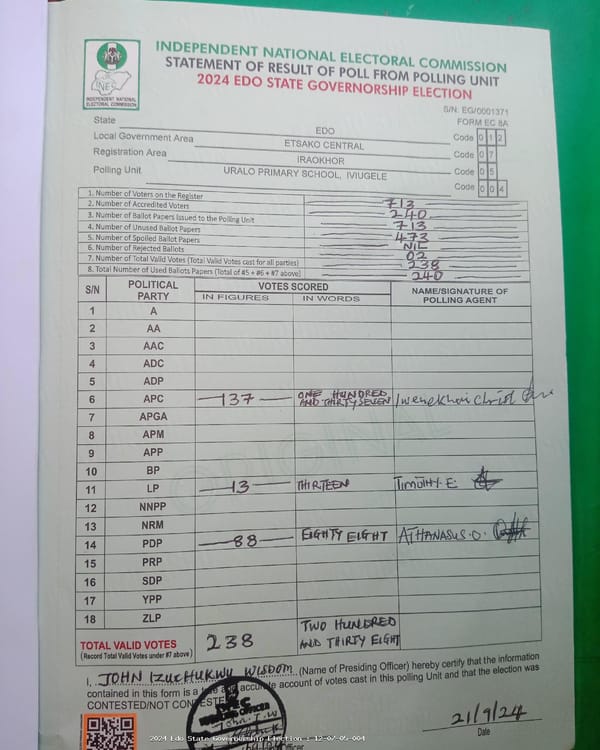 INDEPENDENT NATIONAL ELECTORAL COMMISSION
STATEMENT OF RESULT OF POLL FROM POLLING UNIT
2024 EDO STATE GOVERNORSHIP ELECTION
INEC
INDEPENDENT NATIONAL
ELECTORAL COMMISSION
S/N: EG/0001371
FORM EC 8A
State EDO Code 0 1 2
Local Government Area ETSAKO CENTRAL Code 0 7
Registration Area IRAOKHOR Code 0 5
Polling Unit URALO PRIMARY SCHOOL, IVIUGELE Code 0 0 4
1. Number of Voters on the Register 713
2. Number of Accredited Voters 240
3. Number of Ballot Papers Issued to the Polling Unit 713
4. Number of Unused Ballot Papers 473
5. Number of Spoiled Ballot Papers NIL
6. Number of Rejected Ballots 02
7. Number of Total Valid Votes (Total Valid Votes cast for all parties) 238
8. Total Number of Used Ballots Papers (Total of #5 + #6 + #7 above) 240
S/N POLITICAL PARTY VOTES SCORED NAME/SIGNATURE OF POLLING AGENT
IN FIGURES IN WORDS
1 A
2 AA
3 AAC
4 ADC
5 ADP
6 APC 137 ONE HUNDRED AND THIRTY SEVEN
7 APGA
8 APM
9 APP
10 BP
11 LP 13 THIRTEEN TIMOTHY. E.
12 NNPP
13 NRM
14 PDP 88 EIGHTY EIGHT ATHANASUS. O.
15 PRP
16 SDP
17 YPP
18 ZLP
TOTAL VALID VOTES 238 TWO HUNDRED AND THIRTY EIGHT
(Record Total Valid Votes under #7 above)
I, JOHN IZUCHUKWU WISDOM (Name of Presiding Officer) hereby certify that the information
contained in this form is a true and accurate account of votes cast in this polling Unit and that the election was
CONTESTED/NOT CONTESTED
21/9/24
Date
2024 Edo State Governorship Election : 12-07-05-004